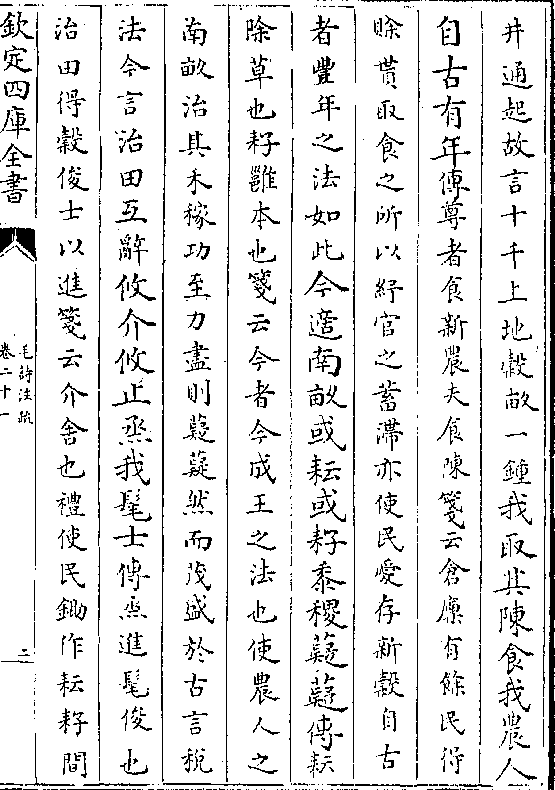 井通起故言十千上地穀畝一鍾我取其陳食我農人
自古有年傳尊者食新農夫食陳箋云倉廩有餘民得
賒貰取食之所以紓官之蓄滯亦使民愛存新穀自古
者豐年之法如此今適南畝或耘或耔黍稷薿薿傳耘
除草也耔雝本也箋云今者今成王之法也使農人之
南畝治其禾稼功至力盡則薿薿然而茂盛於古言稅
法今言治田互辭攸介攸止烝我髦士傳烝進髦俊也
治田得穀俊士以進箋云介舍也禮使民鋤作耘耔間
欽定四庫全書
毛詩注疏
卷二十一
二